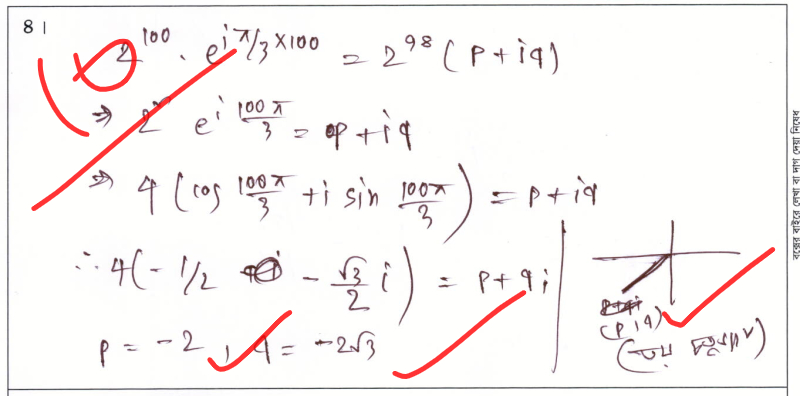 81
2^100 · e^(i π/3 × 100) = 2^98 (p + iq)
⇒ 2² e^(i 100π/3) = p + iq
⇒ 4 (cos 100π/3 + i sin 100π/3) = p + iq
∴ 4(-1/2 - √3/2 i) = p + qi
p = -2, q = -2√3
(p, q)
(৩য় চতুর্ভাগ)
বক্সের বাইরে লেখা বা দাগ দেয়া নিষেধ